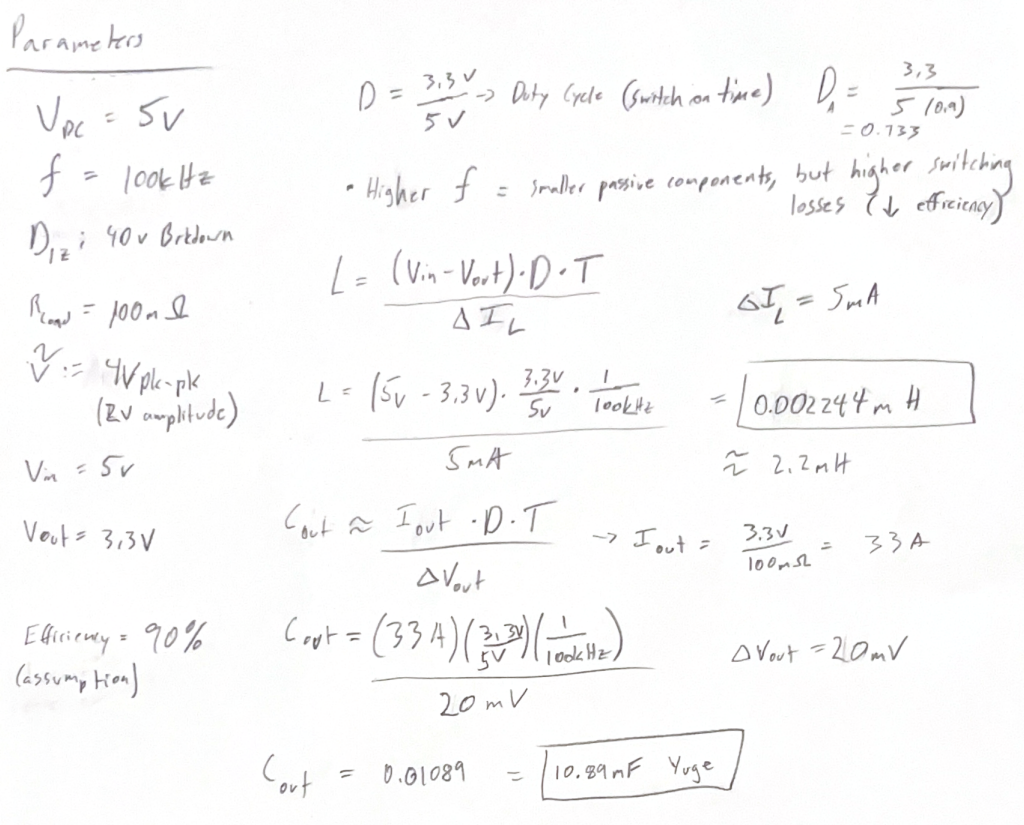 Parameters
V_DC = 5V
f = 100kHz
D_1z ; 40v Brkdown
R_Load = 100mΩ
Ṽ := 4Vpk-pk
(2V amplitude)
Vin = 5v
Vout = 3.3V
Efficiency = 90%
(assumption)
D = 3.3V / 5V → Duty Cycle (switch on time) D_A = 3.3 / 5 (0.9)
= 0.733
• Higher f = smaller passive components, but higher switching
losses (↓ efficiency)
L = (Vin - Vout) · D · T / ΔI_L ΔI_L = 5mA
L = (5v - 3.3v) · 3.3V / 5v · 1 / 100kHz / 5mA = 0.002244m H
≈ 2.2mH
Cout ≈ Iout · D · T / ΔVout → Iout = 3.3V / 100mΩ = 33A
Cout = (33A)(3.3V / 5V)(1 / 100kHz) / 20mV ΔVout = 20mV
Cout = 0.01089 = 10.89mF Yuge